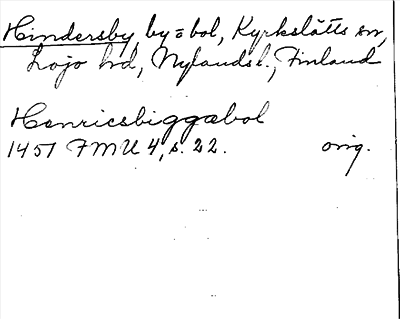 Hindersby, by = bol, Kyrkslätts sn,
Lojo hd, Nylands l., Finland
Henricsbiggabol
1451 FMU 4, s. 22. orig.